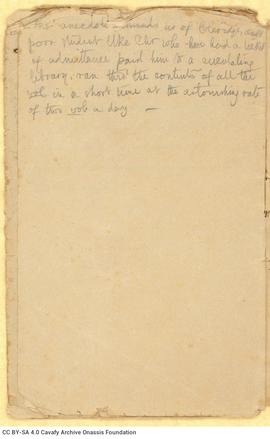 This anecdote reminds us of Coleridge
poor student like Chr who have had a ticket
of admittance paid him to a circulating
library, ran thro' the contents of all the
vol in a short time at the astonishing rate
of two vob a day —
CC BY-SA 4.0 Cavafy Archive Onassis Foundation